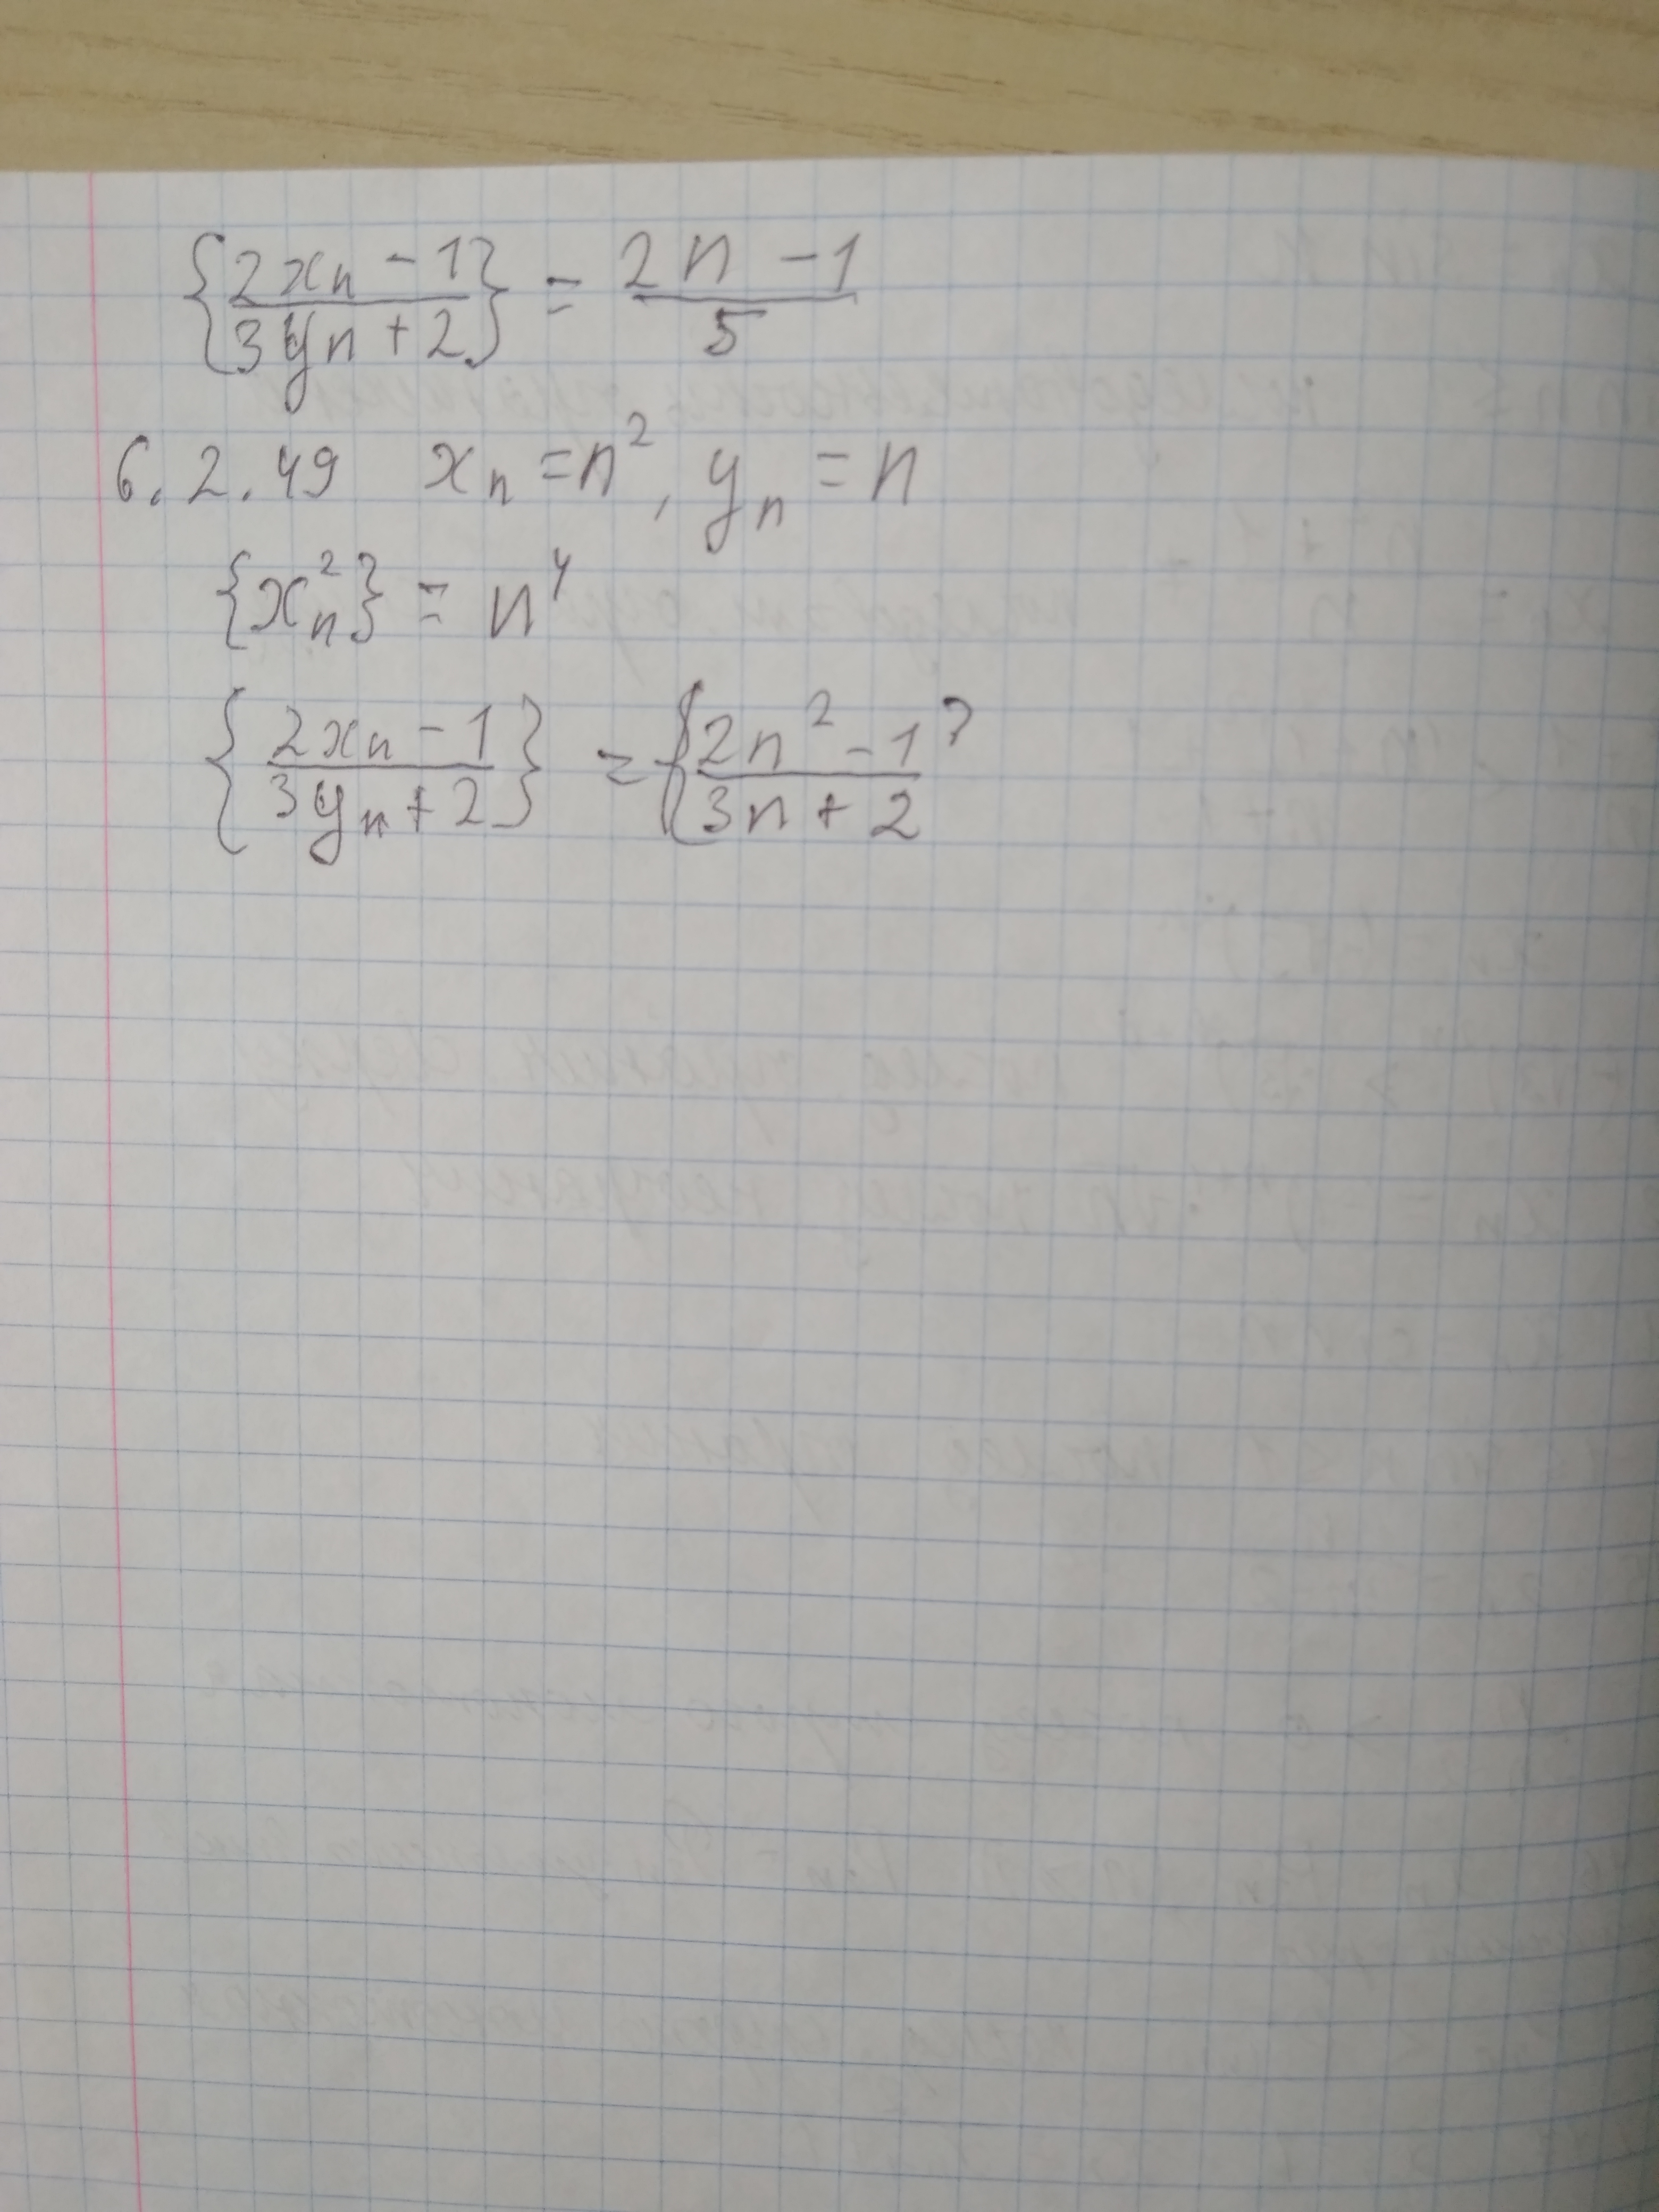 {(2xₙ - 1)/(3yn + 2)} = (2n - 1)/5
6.2.49 xₙ = n², yₙ = n
{xₙ²} = n⁴
{(2xₙ - 1)/(3yₙ + 2)} = {(2n² - 1)/(3n + 2)